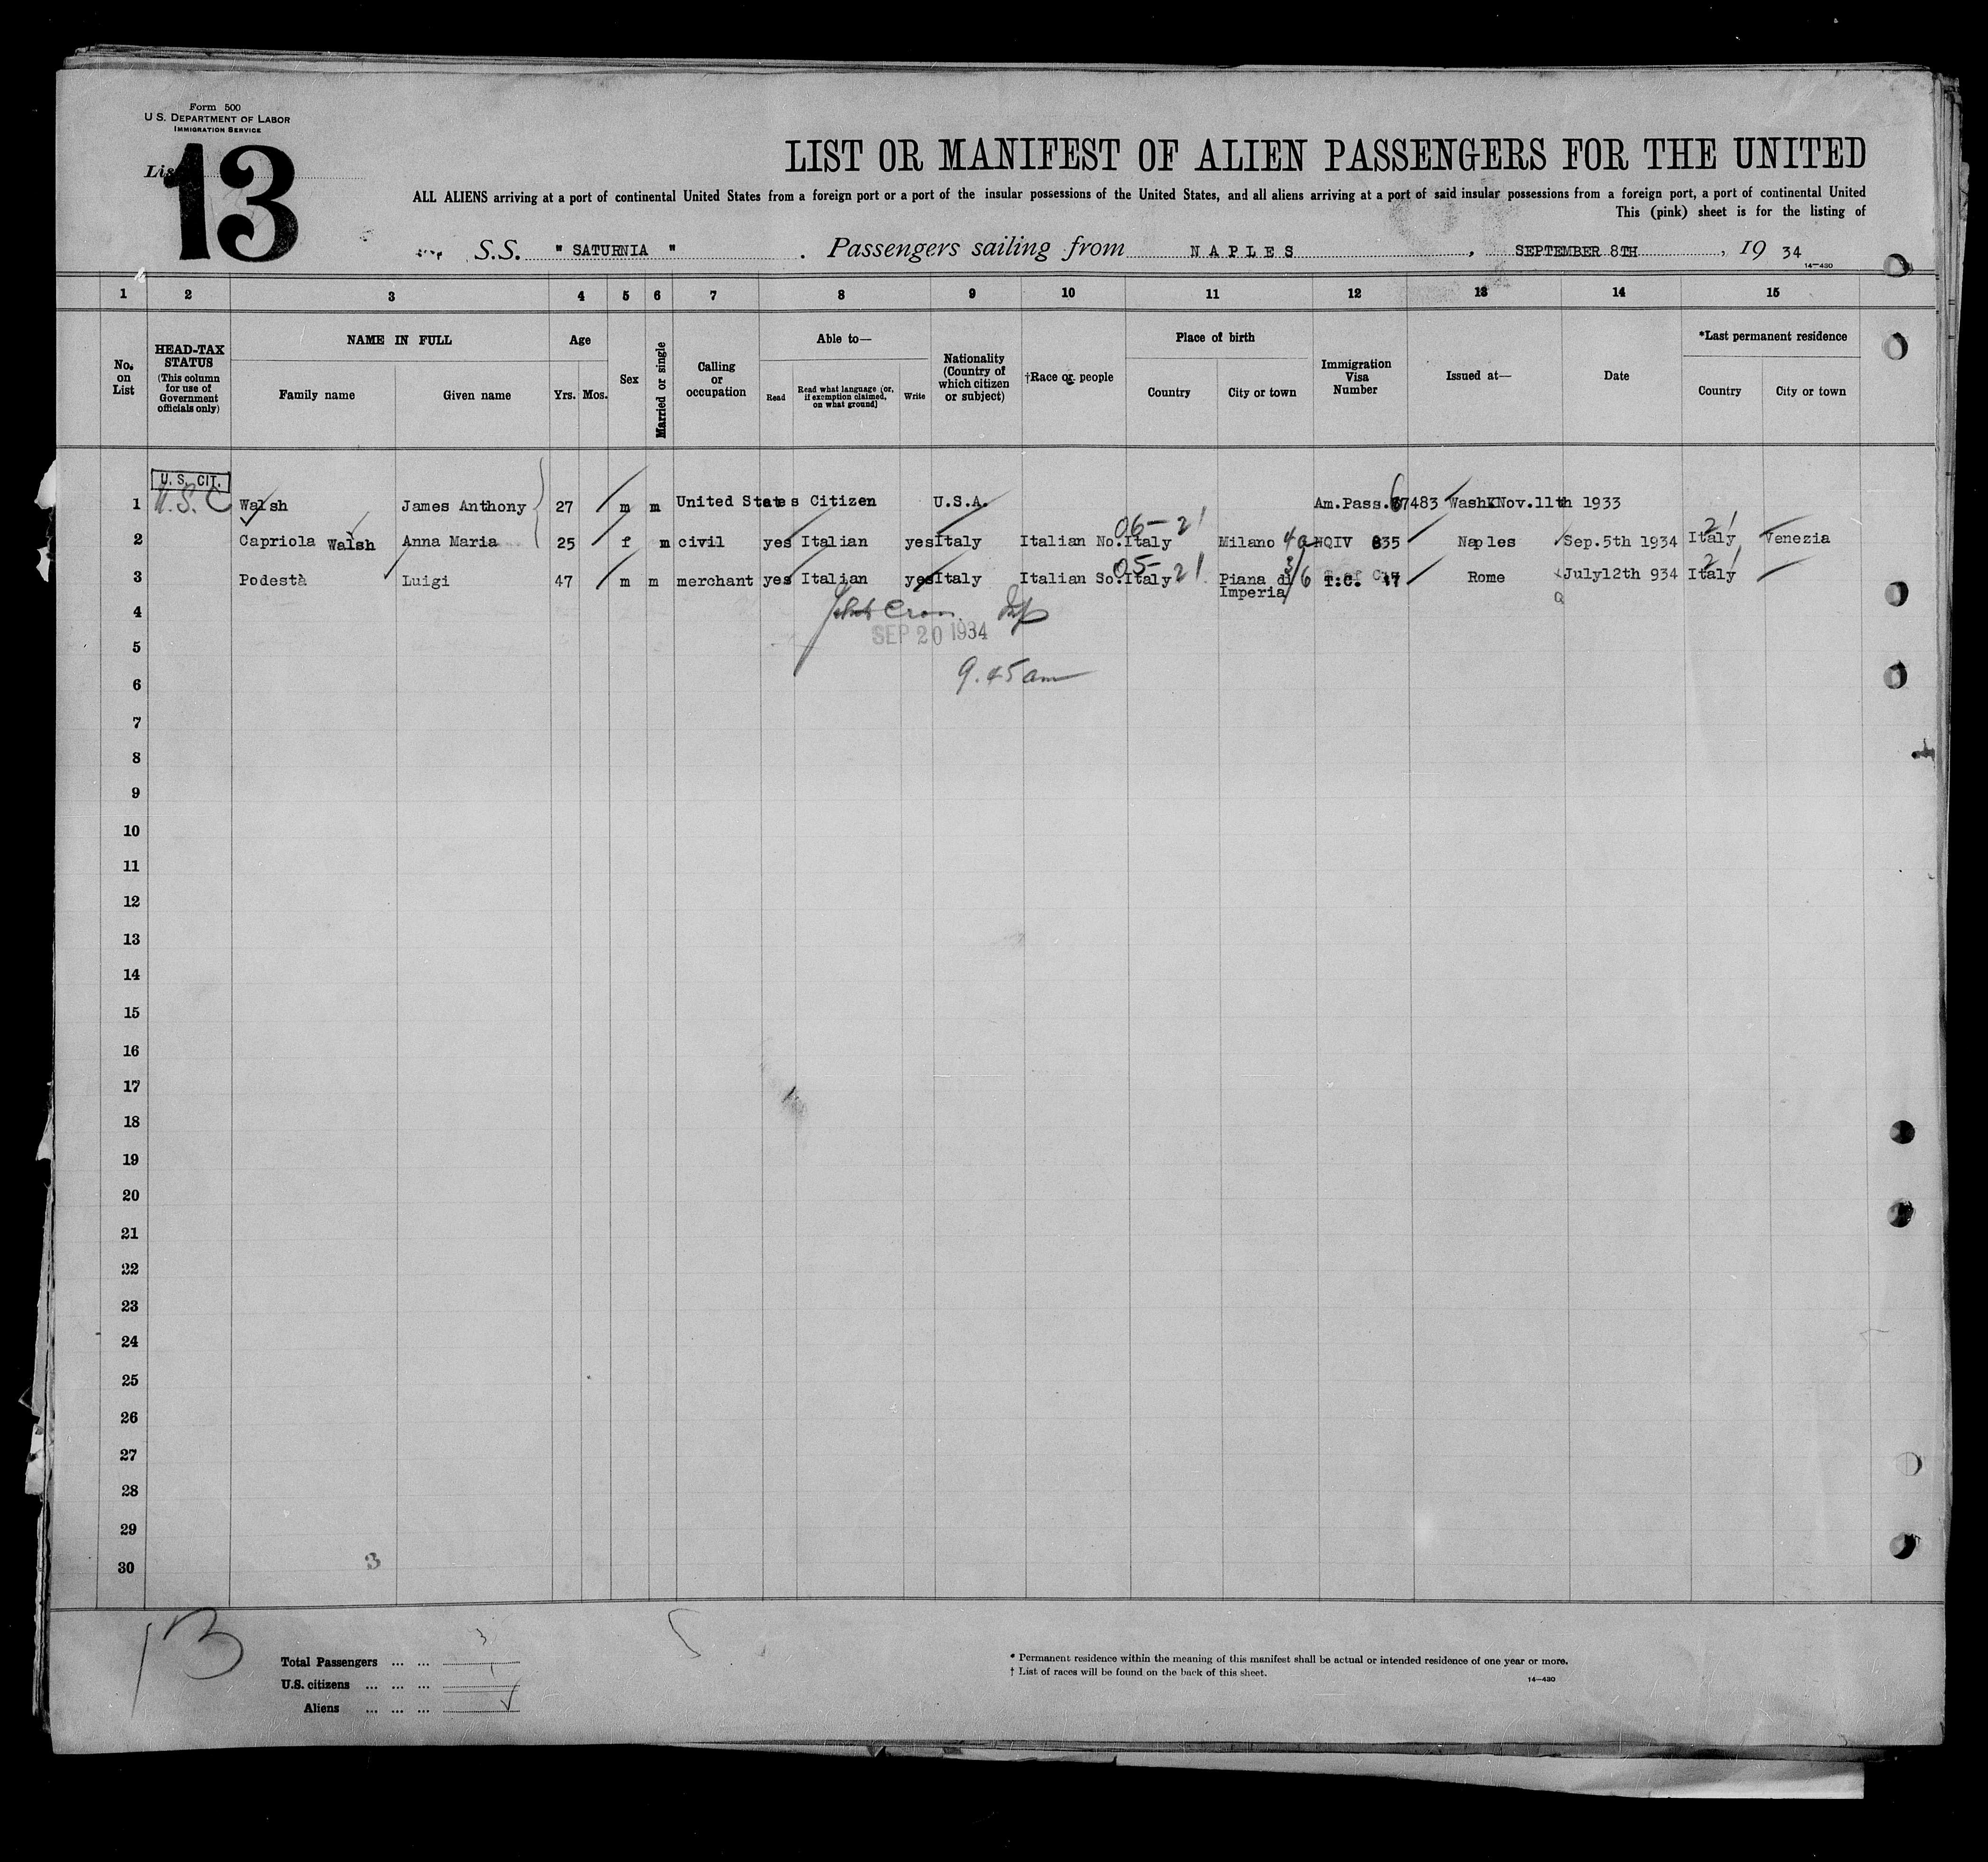 Form 500
U. S. DEPARTMENT OF LABOR
IMMIGRATION SERVICE
List 13
LIST OR MANIFEST OF ALIEN PASSENGERS FOR THE UNITED
ALL ALIENS arriving at a port of continental United States from a foreign port or a port of the insular possessions of the United States, and all aliens arriving at a port of said insular possessions from a foreign port, a port of continental United
This (pink) sheet is for the listing of
S.S. " SATURNIA " . Passengers sailing from NAPLES , SEPTEMBER 8TH , 19 34
14—430
1 2 3 4 5 6 7 8 9 10 11 12 13 14 15
No. on List
HEAD-TAX STATUS (This column for use of Government officials only)
NAME IN FULL
Family name Given name
Age
Yrs. Mos.
Sex
Married or single
Calling or occupation
Able to—
Read Read what language (or, if exemption claimed, on what ground) Write
Nationality (Country of which citizen or subject)
†Race or people
Place of birth
Country City or town
Immigration Visa Number
Issued at—
Date
*Last permanent residence
Country City or town
U. S. CIT.
1 U.S.C Walsh James Anthony 27 m m United States Citizen U.S.A. Am.Pass.67483 Wash Nov.11th 1933
06— 21
2 Capriola Walsh Anna Maria 25 f m civil yes Italian yes Italy Italian No. Italy Milano NQIV 835 Naples Sep.5th 1934 Italy 21 Venezia
05— 21
3 Podestà Luigi 47 m m merchant yes Italian yes Italy Italian So. Italy Piana di Imperia T.C. 47 Rome July12th 934 Italy 21
4
SEP 20 1934
5
9.45 am
6
7
8
9
10
11
12
13
14
15
16
17
18
19
20
21
22
23
24
25
26
27
28
29
30
3
13
Total Passengers ... ... 3
U.S. citizens ... ... ... 1
Aliens ... ... ...
* Permanent residence within the meaning of this manifest shall be actual or intended residence of one year or more.
† List of races will be found on the back of this sheet.
14—430